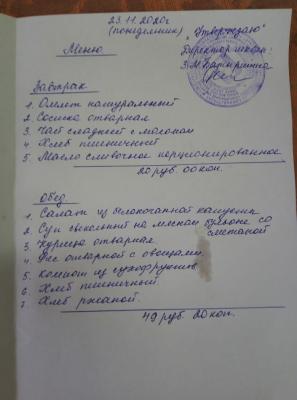 23.11.2020г
(понедельник)
"Утверждаю"
Директор школы:
Меню
З.М.Батыршина
Завтрак
1. Омлет натуральный
2. Сосиска отварная
3. Чай сладкий с молоком
4. Хлеб пшеничный
5. Масло сливочное порционированное
20 руб. 00 коп.
Обед
1. Салат из белокочанной капусты
2. Суп свекольный на мясном бульоне со
сметаной
3. Курица отварная.
4. Рис отварной с овощами.
5. Компот из сухофруктов.
6. Хлеб пшеничный.
7. Хлеб ржаной.
49 руб 20 коп.